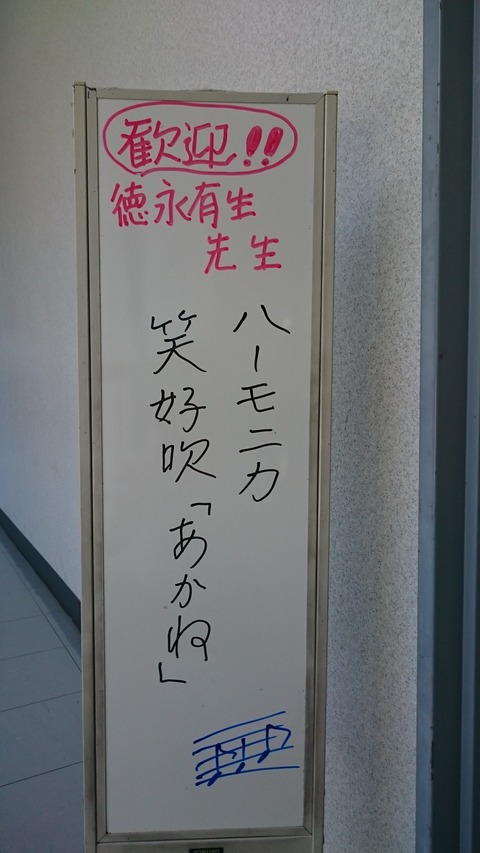 歓迎!!
徳永有生
先生
ハーモニカ
笑好吹「あかね」